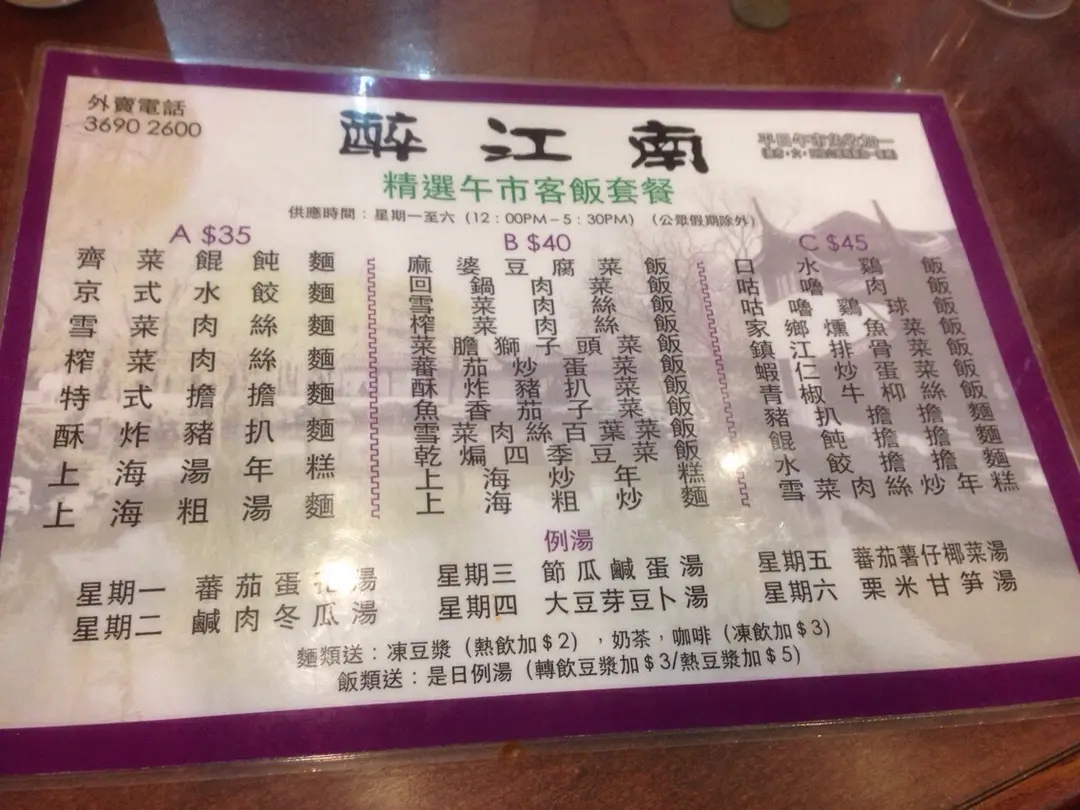 外賣電話
3690 2600
醉江南
平日午市免收加一
精選午市客飯套餐
供應時間：星期一至六（12：00PM－5：30PM）（公眾假期除外）
A $35
齊菜餛飩麵
京式水餃麵
雪菜肉絲麵
榨菜肉絲麵
特式擔擔麵
酥炸豬扒麵
上海湯年糕
上海粗湯麵
B $40
麻婆豆腐菜飯
回鍋肉菜飯
雪菜肉絲飯
榨菜肉絲飯
菜膽獅子頭菜飯
蕃茄炒蛋菜飯
酥炸豬扒菜飯
魚香茄子菜飯
雪菜肉絲百葉菜飯
乾煸四季豆菜飯
上海炒年糕
上海粗炒麵
C $45
口水鷄飯
咕嚕肉飯
咕嚕鷄球飯
家鄉燻魚菜飯
鎮江排骨菜飯
蝦仁炒蛋菜飯
青椒牛柳絲飯
豬扒擔擔麵
餛飩擔擔麵
水餃擔擔麵
雪菜肉絲炒年糕
例湯
星期一 蕃茄蛋花湯
星期二 鹹肉冬瓜湯
星期三 節瓜鹹蛋湯
星期四 大豆芽豆卜湯
星期五 蕃茄薯仔椰菜湯
星期六 粟米甘筍湯
麵類送：凍豆漿（熱飲加＄2），奶茶，咖啡（凍飲加＄3）
飯類送：是日例湯（轉飲豆漿加＄3/熱豆漿加＄5）